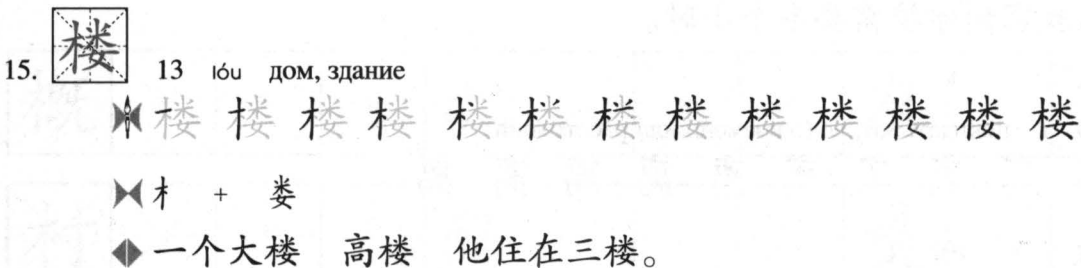 15. 楼 13 lóu дом, здание
楼 楼 楼 楼 楼 楼 楼 楼 楼 楼 楼 楼 楼
木 + 娄
一个大楼 高楼 他住在三楼。